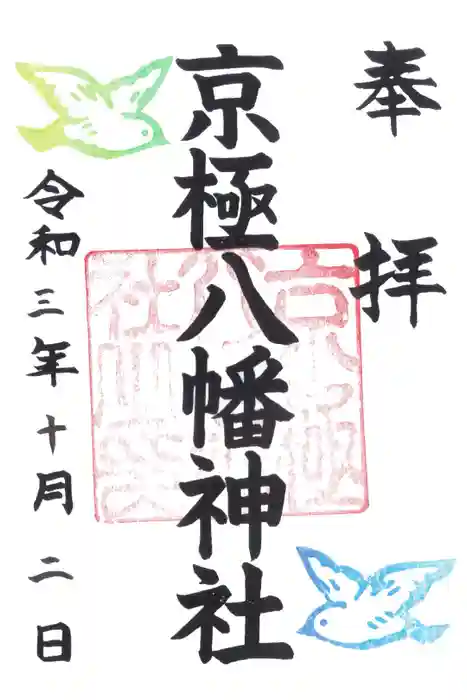 奉拝
京極八幡神社
令和三年十月二日